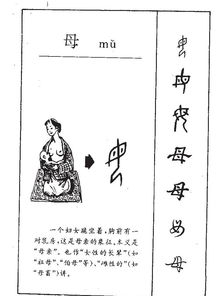 母 mǔ
一个妇女跪坐着，胸前有一
对乳房，这是母亲的象征。本义是
“母亲”。也作“女性的长辈”（如
“祖母”、“伯母”等）、“雌性的”（如
“母畜”）讲。
母
母